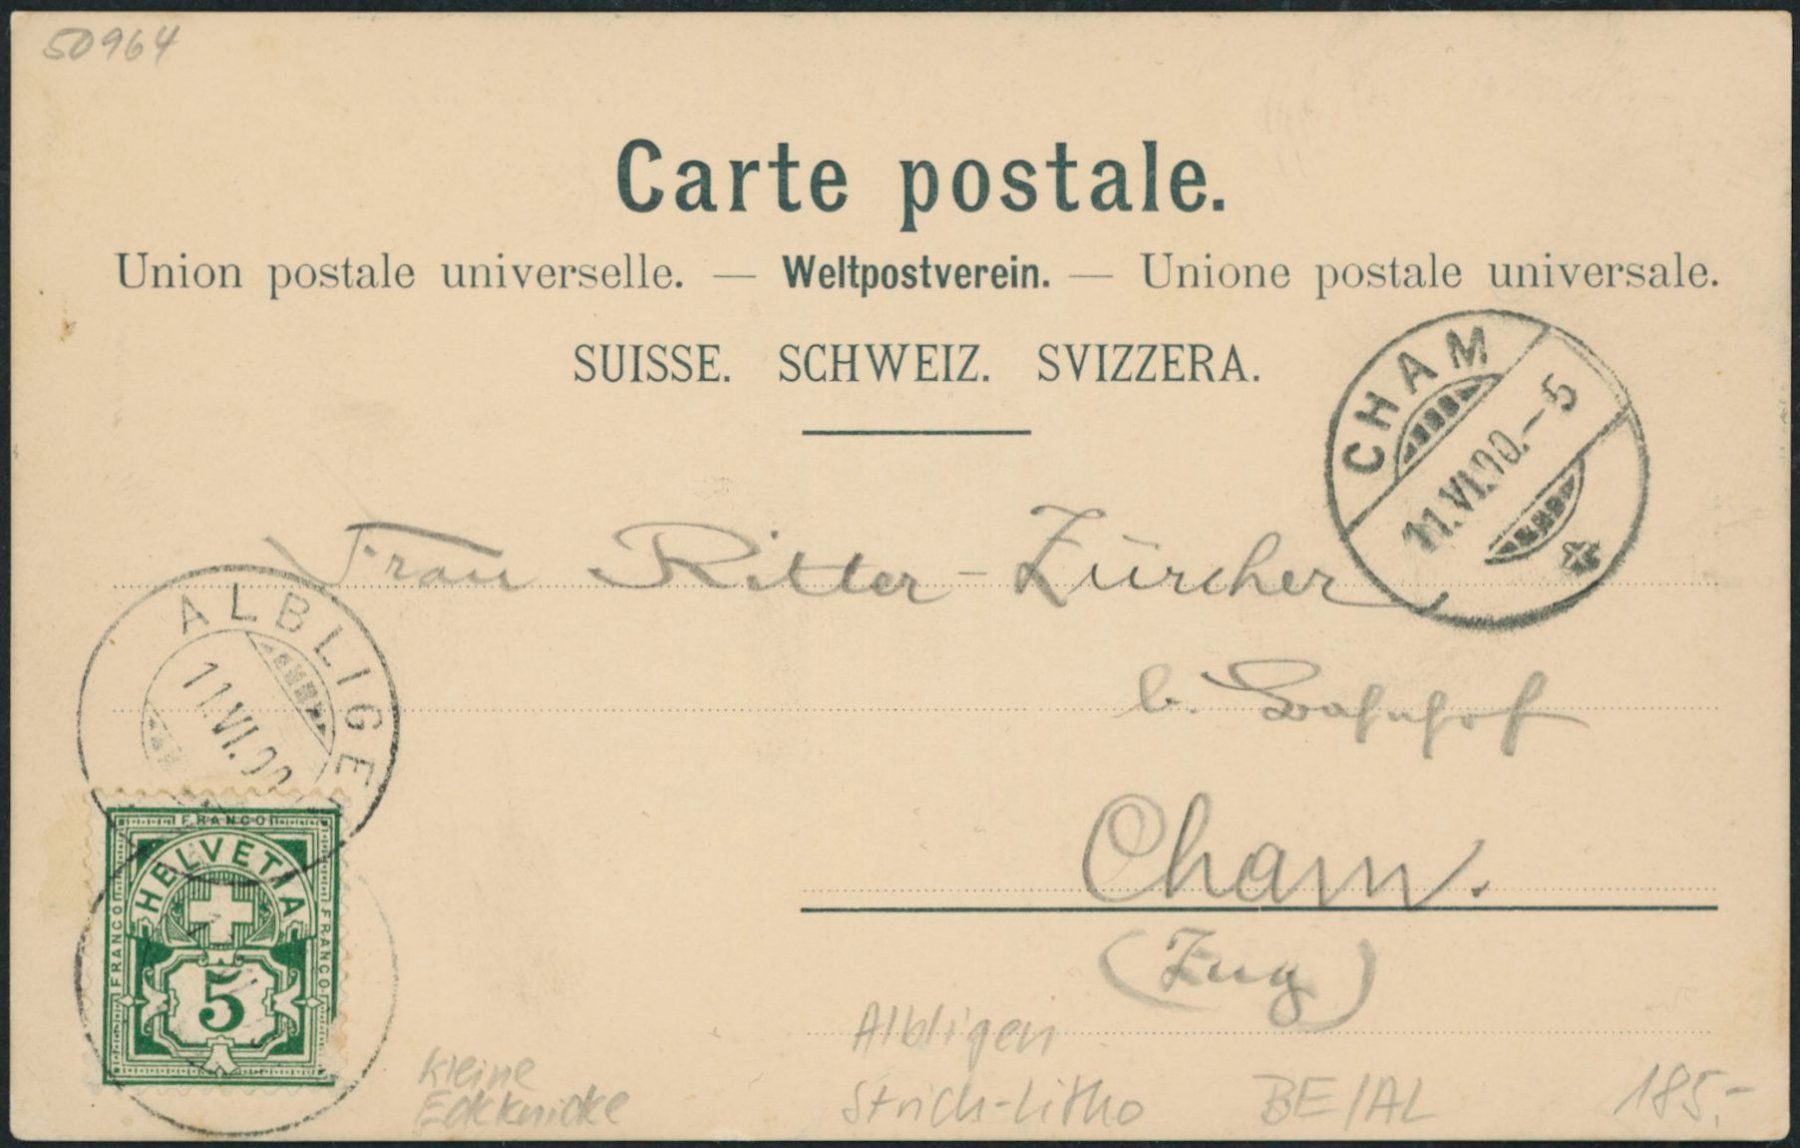 50964
Carte postale.
Union postale universelle. — Weltpostverein. — Unione postale universale.
SUISSE. SCHWEIZ. SVIZZERA.
CHAM
11.VI.00.-5
Frau Ritter-Zürcher
b. Bahnhof
Cham.
(Zug)
ALBLIGEN
11.VI.00
FRANCO
HELVETIA
FRANCO
FRANCO
5
Kleine
Eckknicke
Albligen
Strich-Litho
BE/AL
185.-